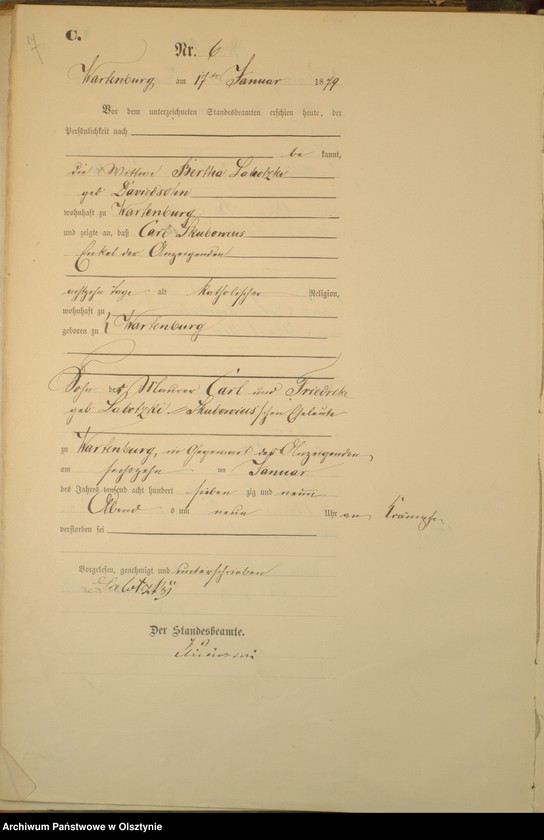 7
C.
Nr. 6
Wartenburg am 17ten Januar 1879
Vor dem unterzeichneten Standesbeamten erschien heute, der
Persönlichkeit nach
be kannt,
die Wittwe Bertha Labotzke
geb Davidsohn
wohnhaft zu Wartenburg
und zeigte an, daß Carl Skubowius
Enkel der Anzeigenden
achtzehn Tage alt katholischer Religion,
wohnhaft zu
geboren zu Wartenburg
Sohn des Maurer Carl und Friedrike
geb. Labotzke Skubowius'schen Eheleute
zu Wartenburg, in Gegenwart der Anzeigenden
am sechszehn ten Januar
des Jahres tausend acht hundert sieben zig und neun
Abend s um neun Uhr an Krämpfe
verstorben sei
Vorgelesen, genehmigt und unterschrieben
Der Standesbeamte.
Archiwum Państwowe w Olsztynie